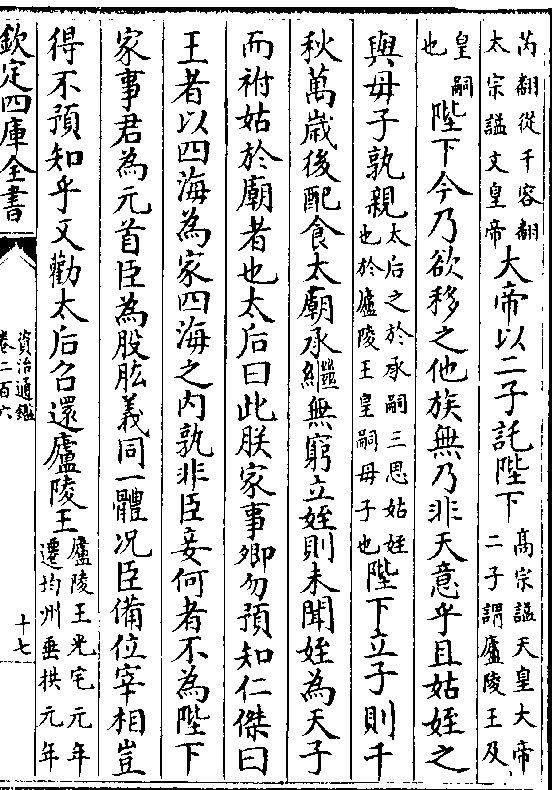 芮翻從千容翻
太宗諡文皇帝
大帝以二子託陛下
高宗諡天皇大帝
二子謂廬陵王及
皇嗣
也
陛下今乃欲移之他族無乃非天意乎且姑姪之
與母子孰親
太后之於承嗣三思姑姪
也於廬陵王皇嗣母子也
陛下立子則千
秋萬歲後配食太廟承繼無窮立姪則未聞姪為天子
而祔姑於廟者也太后曰此朕家事卿勿預知仁傑曰
王者以四海為家四海之内孰非臣妾何者不為陛下
家事君為元首臣為股肱義同一體况臣備位宰相豈
得不預知乎又勸太后召還廬陵王
廬陵王光宅元年
遷均州垂拱元年
欽定四庫全書
資治通鑑
卷二百六
十七